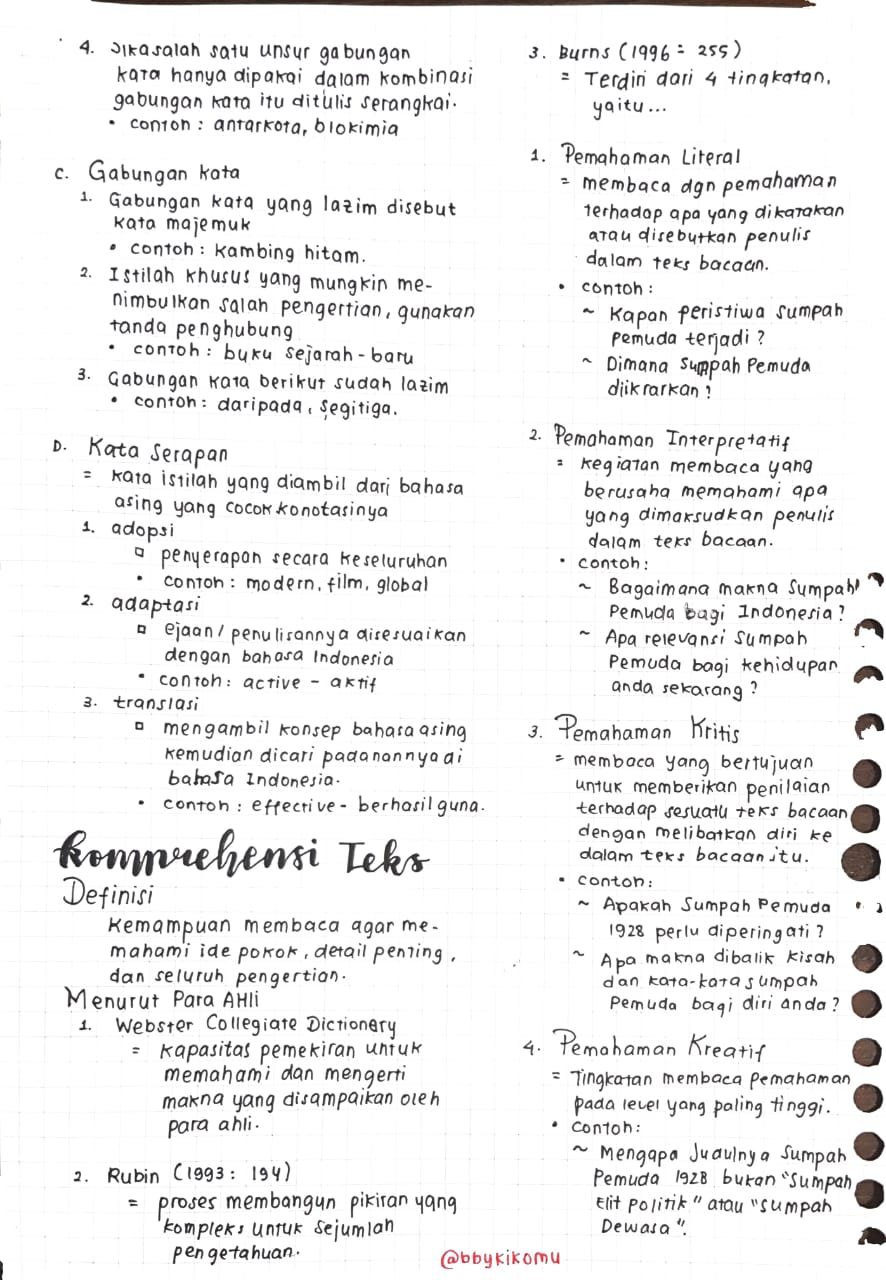 4. Jika salah satu unsur gabungan
kata hanya dipakai dalam kombinasi
gabungan kata itu ditulis serangkai.
• contoh : antarkota, biokimia
C. Gabungan kata
1. Gabungan kata yang lazim disebut
kata majemuk
• contoh : kambing hitam.
2. Istilah khusus yang mungkin me-
nimbulkan salah pengertian, gunakan
tanda penghubung
• contoh : buku sejarah-baru
3. Gabungan kata berikut sudah lazim
• contoh : daripada, segitiga.
D. Kata Serapan
= kata istilah yang diambil dari bahasa
asing yang cocok konotasinya
1. adopsi
▫ penyerapan secara keseluruhan
• contoh : modern, film, global
2. adaptasi
▫ ejaan/penulisannya disesuaikan
dengan bahasa Indonesia
• contoh : active - aktif
3. translasi
▫ mengambil konsep bahasa asing
kemudian dicari padanannya di
bahasa Indonesia.
• contoh : effective - berhasil guna.
Komprehensi Teks
Definisi
Kemampuan membaca agar me-
mahami ide pokok, detail penting,
dan seluruh pengertian.
Menurut Para AHLi
1. Webster Collegiate Dictionary
= kapasitas pemekiran untuk
memahami dan mengerti
makna yang disampaikan oleh
para ahli.
2. Rubin (1993 : 194)
= proses membangun pikiran yang
kompleks untuk sejumlah
pengetahuan.
3. Burns (1996 : 255)
= Terdiri dari 4 tingkatan,
yaitu...
1. Pemahaman Literal
= membaca dgn pemahaman
terhadap apa yang dikatakan
atau disebutkan penulis
dalam teks bacaan.
• contoh :
~ Kapan peristiwa sumpah
pemuda terjadi ?
~ Dimana Sumpah Pemuda
diikrarkan ?
2. Pemahaman Interpretatif
= kegiatan membaca yang
berusaha memahami apa
yang dimaksudkan penulis
dalam teks bacaan.
• contoh :
~ Bagaimana makna Sumpah
Pemuda bagi Indonesia ?
~ Apa relevansi Sumpah
Pemuda bagi kehidupan
anda sekarang ?
3. Pemahaman Kritis
= membaca yang bertujuan
untuk memberikan penilaian
terhadap sesuatu teks bacaan
dengan melibatkan diri ke
dalam teks bacaan itu.
• contoh :
~ Apakah Sumpah Pemuda
1928 perlu diperingati ?
~ Apa makna dibalik kisah
dan kata-kata sumpah
Pemuda bagi diri anda ?
4. Pemahaman Kreatif
= Tingkatan membaca pemahaman
pada level yang paling tinggi.
• Contoh :
~ Mengapa Judulnya Sumpah
Pemuda 1928 bukan "Sumpah
Elit Politik" atau "Sumpah
Dewasa".
@bbykikomu